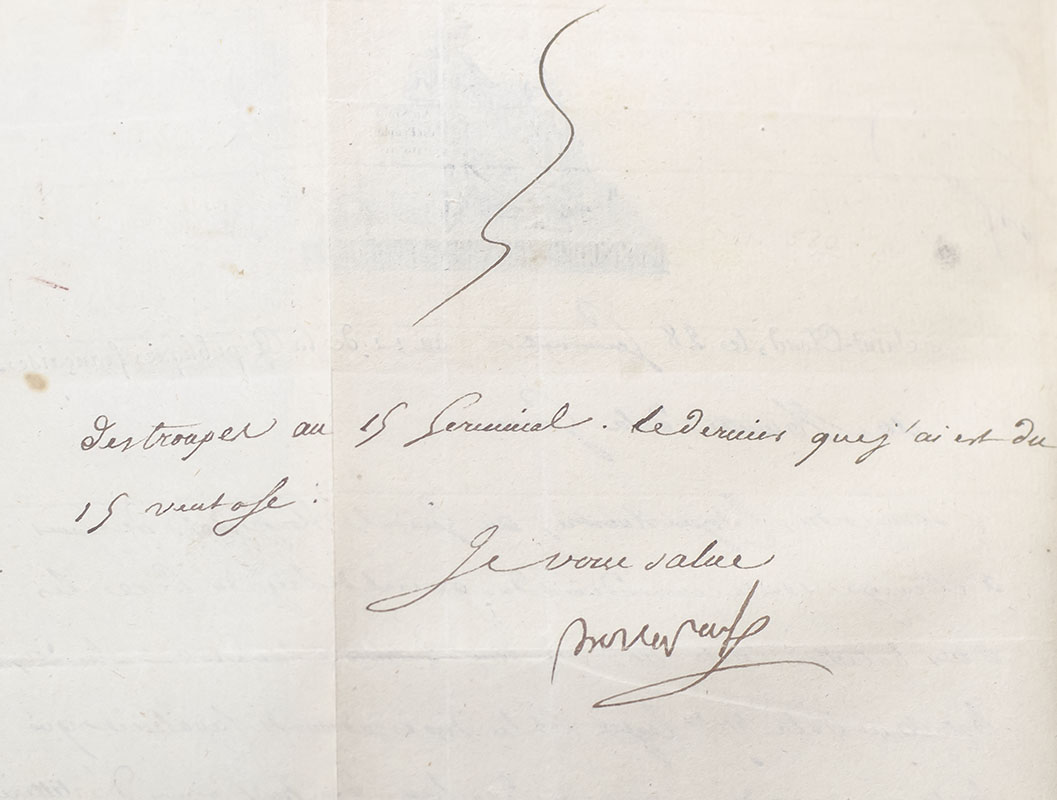 des troupes au 15 Germinal. le dernier que j'ai est du
15 ventose :
Je vous salue
Bonaparte